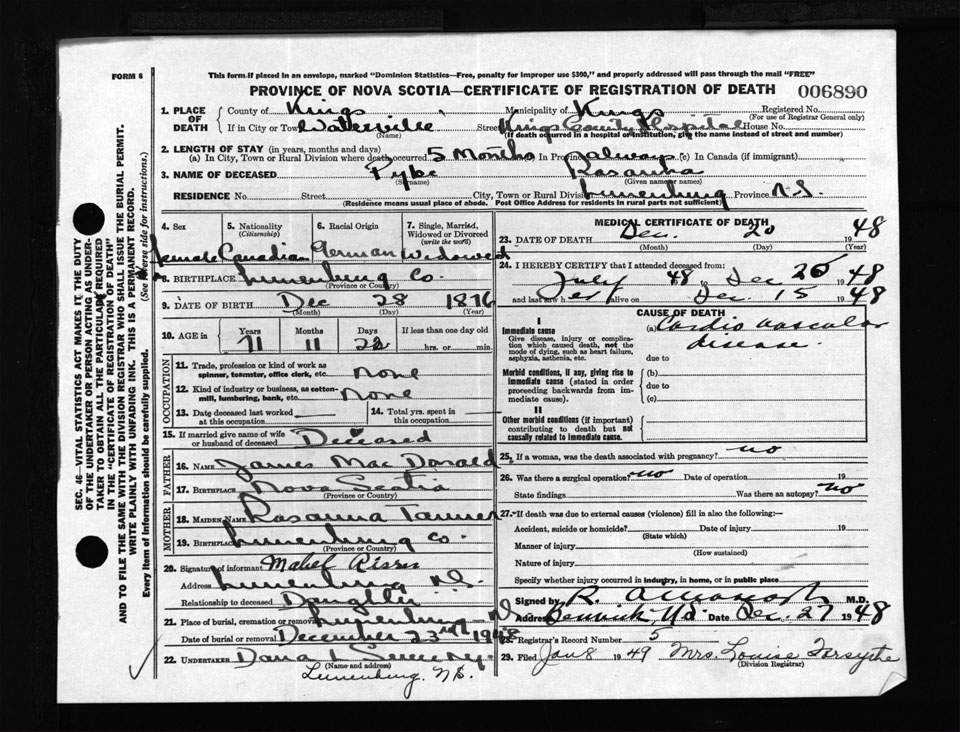 FORM 6
This form if placed in an envelope, marked "Dominion Statistics—Free, penalty for improper use $300," and properly addressed will pass through the mail "FREE"
PROVINCE OF NOVA SCOTIA—CERTIFICATE OF REGISTRATION OF DEATH 006890
1. PLACE OF DEATH
County of Kings Municipality of Kings Registered No.
(For use of Registrar General only)
If in City or Town Waterville Street Kings County Hospital House No.
(Name) (If death occurred in a hospital or institution, give the name instead of street and number)
2. LENGTH OF STAY (in years, months and days)
(a) In City, Town or Rural Division where death occurred 5 Months In Province always (c) In Canada (if immigrant)
3. NAME OF DECEASED Pyke Rosanna
(Surname) (Given name or names)
RESIDENCE No. Street City, Town or Rural Division Lunenburg Province N.S.
(Residence means usual place of abode. Post Office Address for residents in rural parts not sufficient)
SEC. 46—VITAL STATISTICS ACT MAKES IT THE DUTY
OF THE UNDERTAKER OR PERSON ACTING AS UNDER-
TAKER TO OBTAIN ALL THE PARTICULARS REQUIRED
IN THE "CERTIFICATE OF REGISTRATION OF DEATH"
AND TO FILE THE SAME WITH THE DIVISION REGISTRAR WHO SHALL ISSUE THE BURIAL PERMIT.
WRITE PLAINLY WITH UNFADING INK. THIS IS A PERMANENT RECORD.
Every item of Information should be carefully supplied. (See reverse side for instructions.)
4. Sex 5. Nationality (Citizenship) 6. Racial Origin 7. Single, Married, Widowed or Divorced (write the word)
Female Canadian German Widowed
8. BIRTHPLACE Lunenburg Co.
(Province or Country)
9. DATE OF BIRTH Dec 28 1876
(Month) (Day) (Year)
10. AGE in Years Months Days If less than one day old
71 11 22 hrs. or min.
OCCUPATION
11. Trade, profession or kind of work as
spinner, teamster, office clerk, etc. None
12. Kind of industry or business, as cotton-
mill, lumbering, bank, etc. None
13. Date deceased last worked at this occupation 14. Total yrs. spent in this occupation
15. If married give name of wife or husband of deceased Deceased
FATHER
16. NAME James MacDonald
17. BIRTHPLACE Nova Scotia
(Province or Country)
MOTHER
18. MAIDEN NAME Rosanna Tanner
19. BIRTHPLACE Lunenburg Co.
(Province or Country)
20. Signature of informant Mabel Risser
Address Lunenburg N.S.
Relationship to deceased Daughter
21. Place of burial, cremation or removal Lunenburg N.S.
Date of burial or removal December 23rd 1948
22. UNDERTAKER Dana L
(Name and address)
Lunenburg, N.S.
MEDICAL CERTIFICATE OF DEATH
23. DATE OF DEATH Dec. 20 1948
(Month) (Day)
24. I HEREBY CERTIFY that I attended deceased from:
July 48 to Dec 20 1948
and last saw her alive on Dec. 15 1948
CAUSE OF DEATH
I
Immediate cause (a) Cardio vascular
Give disease, injury or complica-
tion which caused death, not the
mode of dying, such as heart failure,
asphyxia, asthenia, etc.
disease.
due to
Morbid conditions, if any, giving rise to
immediate cause (stated in order
proceeding backwards from im-
mediate cause).
(b)
due to
(c)
II
Other morbid conditions (if important)
contributing to death but not
causally related to immediate cause.
25. If a woman, was the death associated with pregnancy? no
26. Was there a surgical operation? no Date of operation 19
State findings Was there an autopsy? no
27. If death was due to external causes (violence) fill in also the following:—
Accident, suicide or homicide? Date of injury 19
(State which)
Manner of injury
(How sustained)
Nature of injury
Specify whether injury occurred in industry, in home, or in public place
Signed by R. M.D.
Address Berwick, N.S. Date Dec. 27 1948
28. Registrar's Record Number 5
29. Filed Jan 8 1949 Mrs. Louise Forsythe
(Division Registrar)